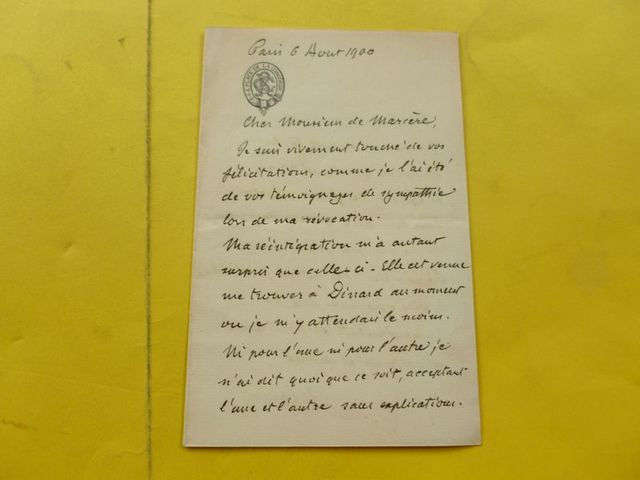 Paris 6 Aout 1900
Cher Monsieur de Marcère,
Je suis vivement touché de vos
félicitations, comme je l'ai été
de vos témoignages de sympathie
lors de ma révocation.
Ma réintégration m'a autant
surpris que celle-ci - Elle est venue
me trouver à Dinard au moment
ou je m'y attendais le moins.
Ni pour l'une ni pour l'autre je
n'ai dit quoi que ce soit, acceptant
l'une et l'autre sans explications.